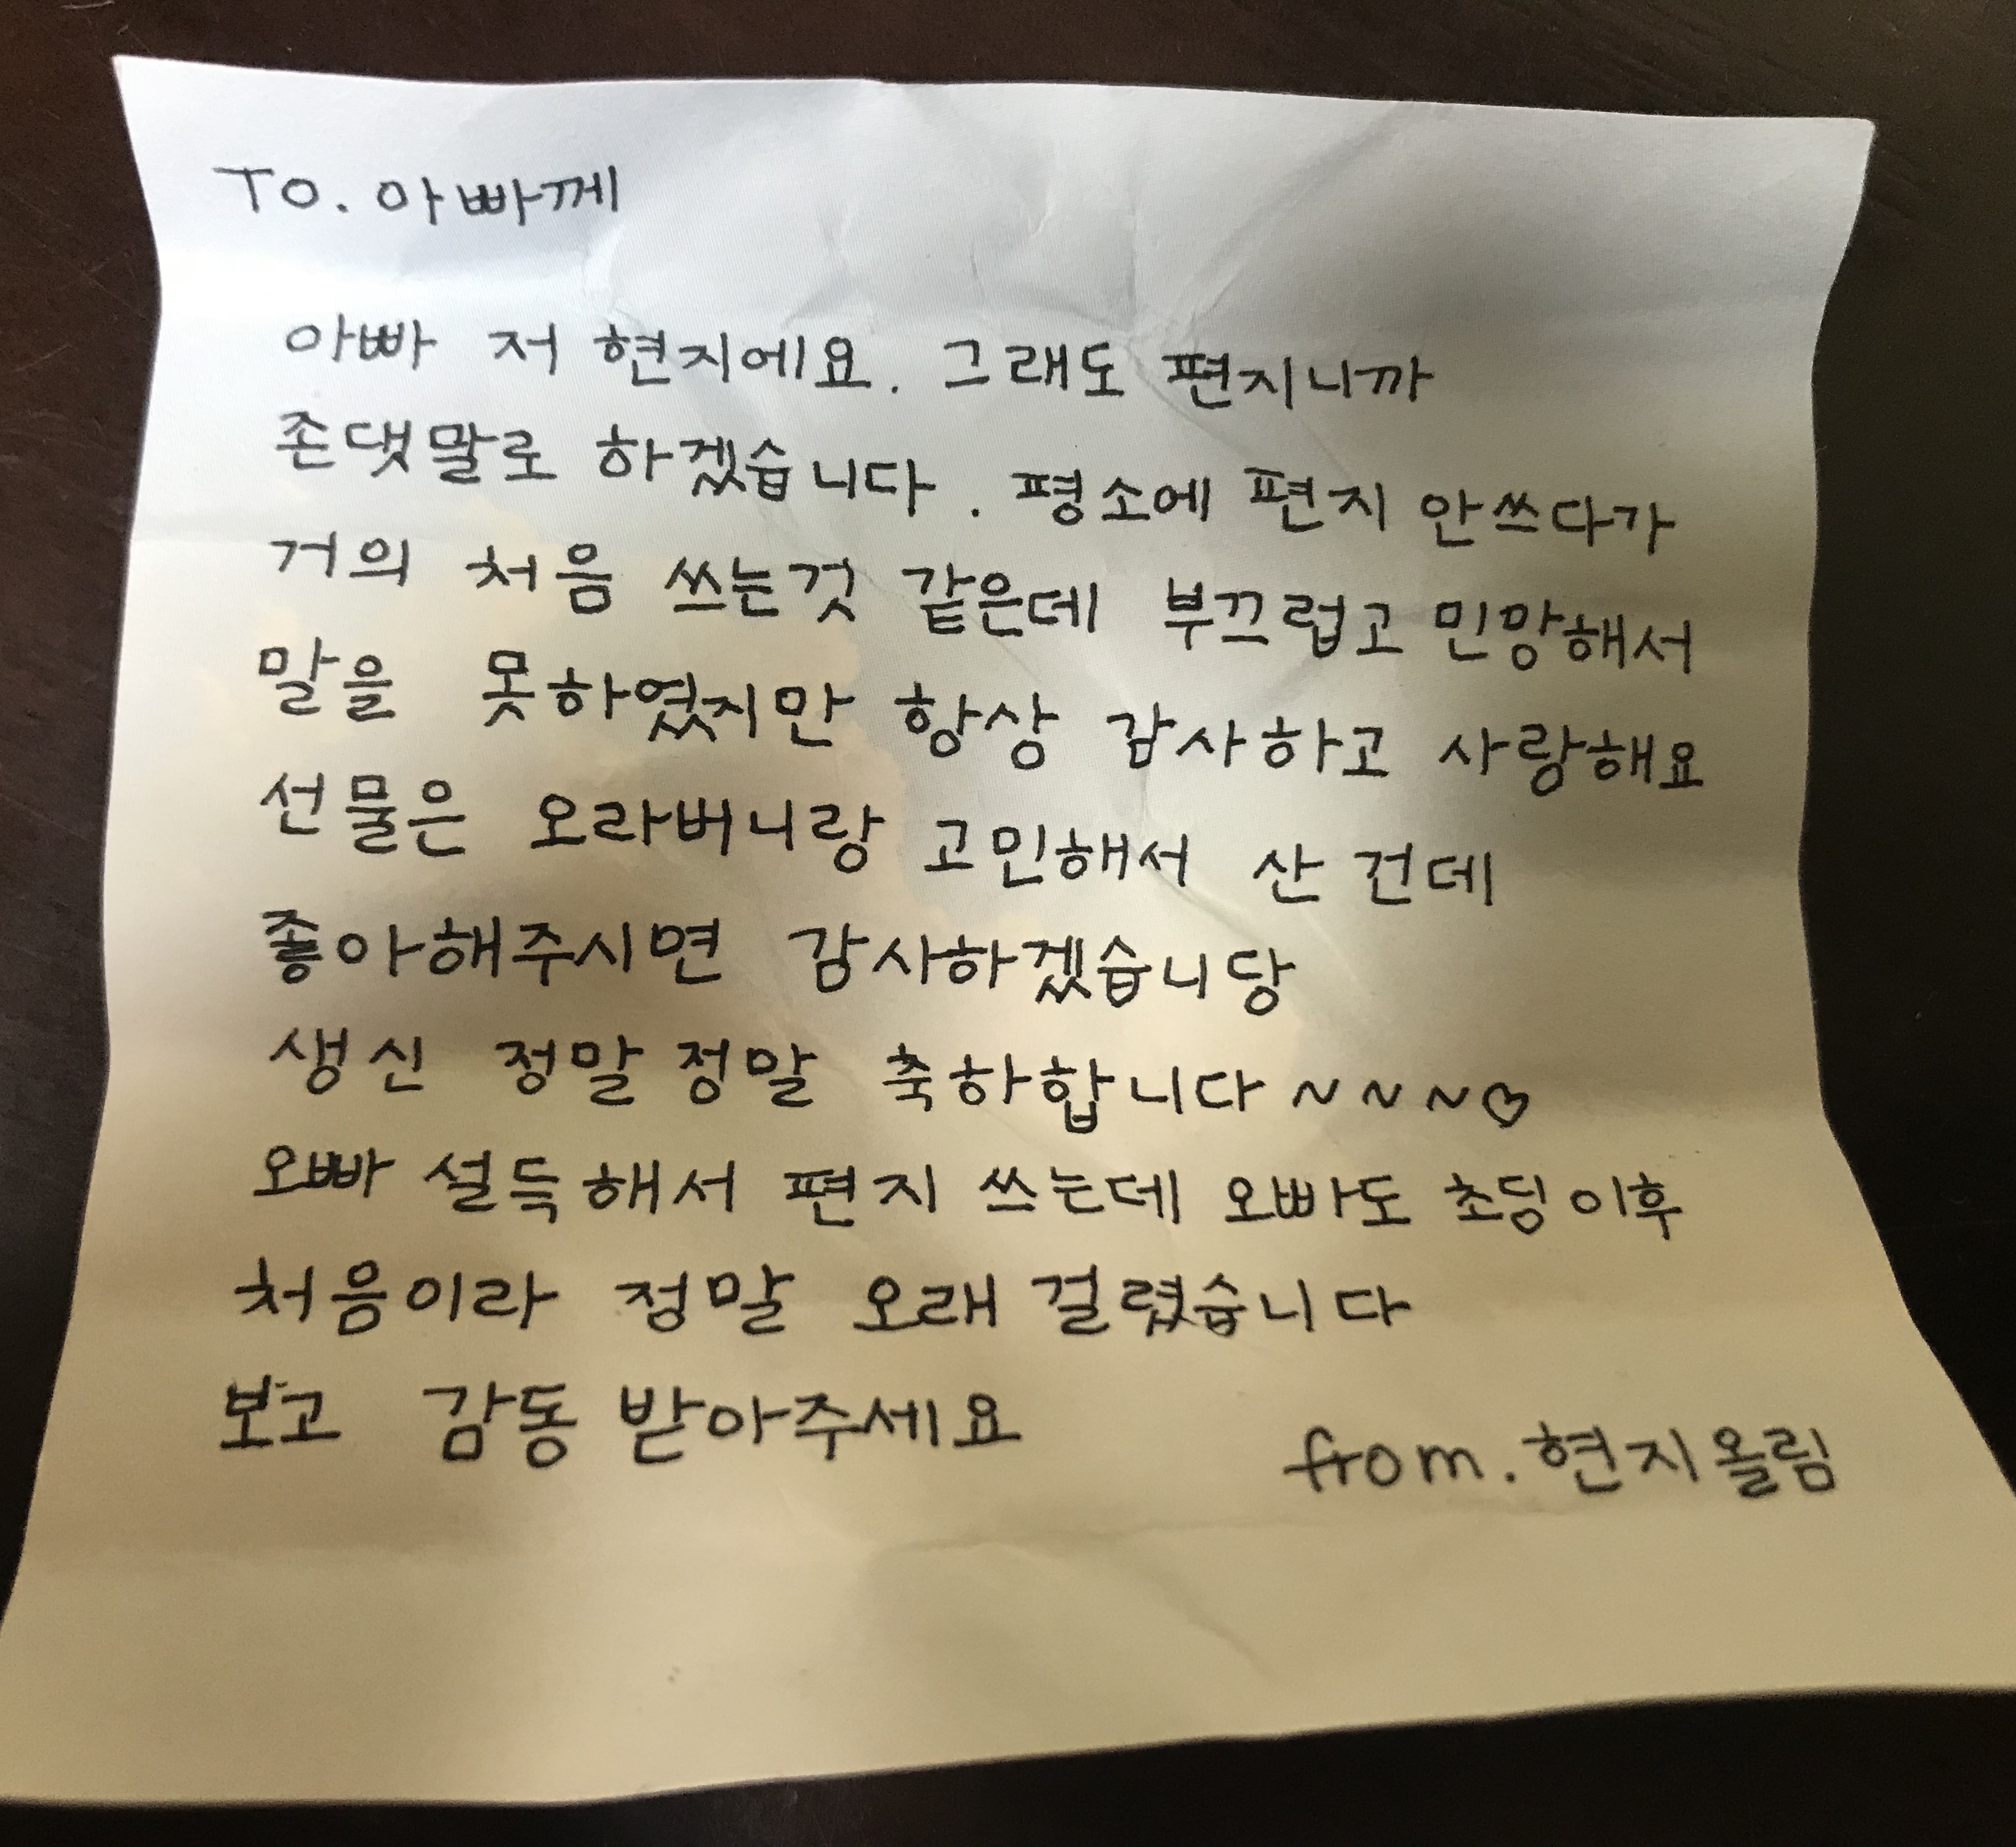 To. 아빠께
아빠 저 현지에요. 그래도 편지니까
존댓말로 하겠습니다. 평소에 편지 안쓰다가
거의 처음 쓰는것 같은데 부끄럽고 민망해서
말을 못하였지만 항상 감사하고 사랑해요
선물은 오라버니랑 고민해서 산 건데
좋아해주시면 감사하겠습니당
생신 정말 정말 축하합니다~~~♡
오빠 설득해서 편지 쓰는데 오빠도 초딩이후
처음이라 정말 오래 걸렸습니다
보고 감동 받아주세요
from. 현지올림